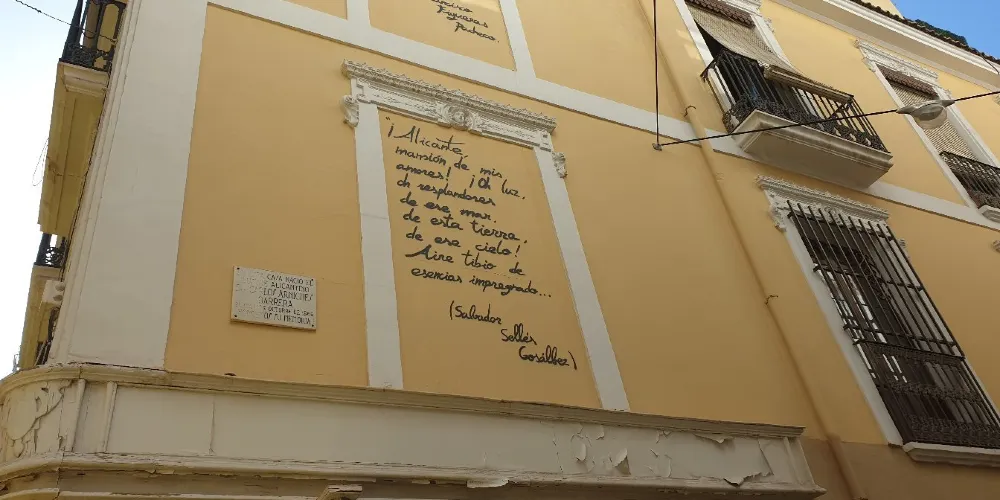 Francisco
Figueras
Pacheco.
"¡Alicante,
mansión de mis
amores! ¡Oh luz,
oh resplandores
de ese mar,
de esta tierra,
de ese cielo!
Aire tibio de
esencias impregnado...
(Salvador
Sellés
Gosálbez)
CASA NACIO
ALICANTINO
CARLOS ARNICHES
BARRERA
OCTUBRE DE
SU MEMORIA